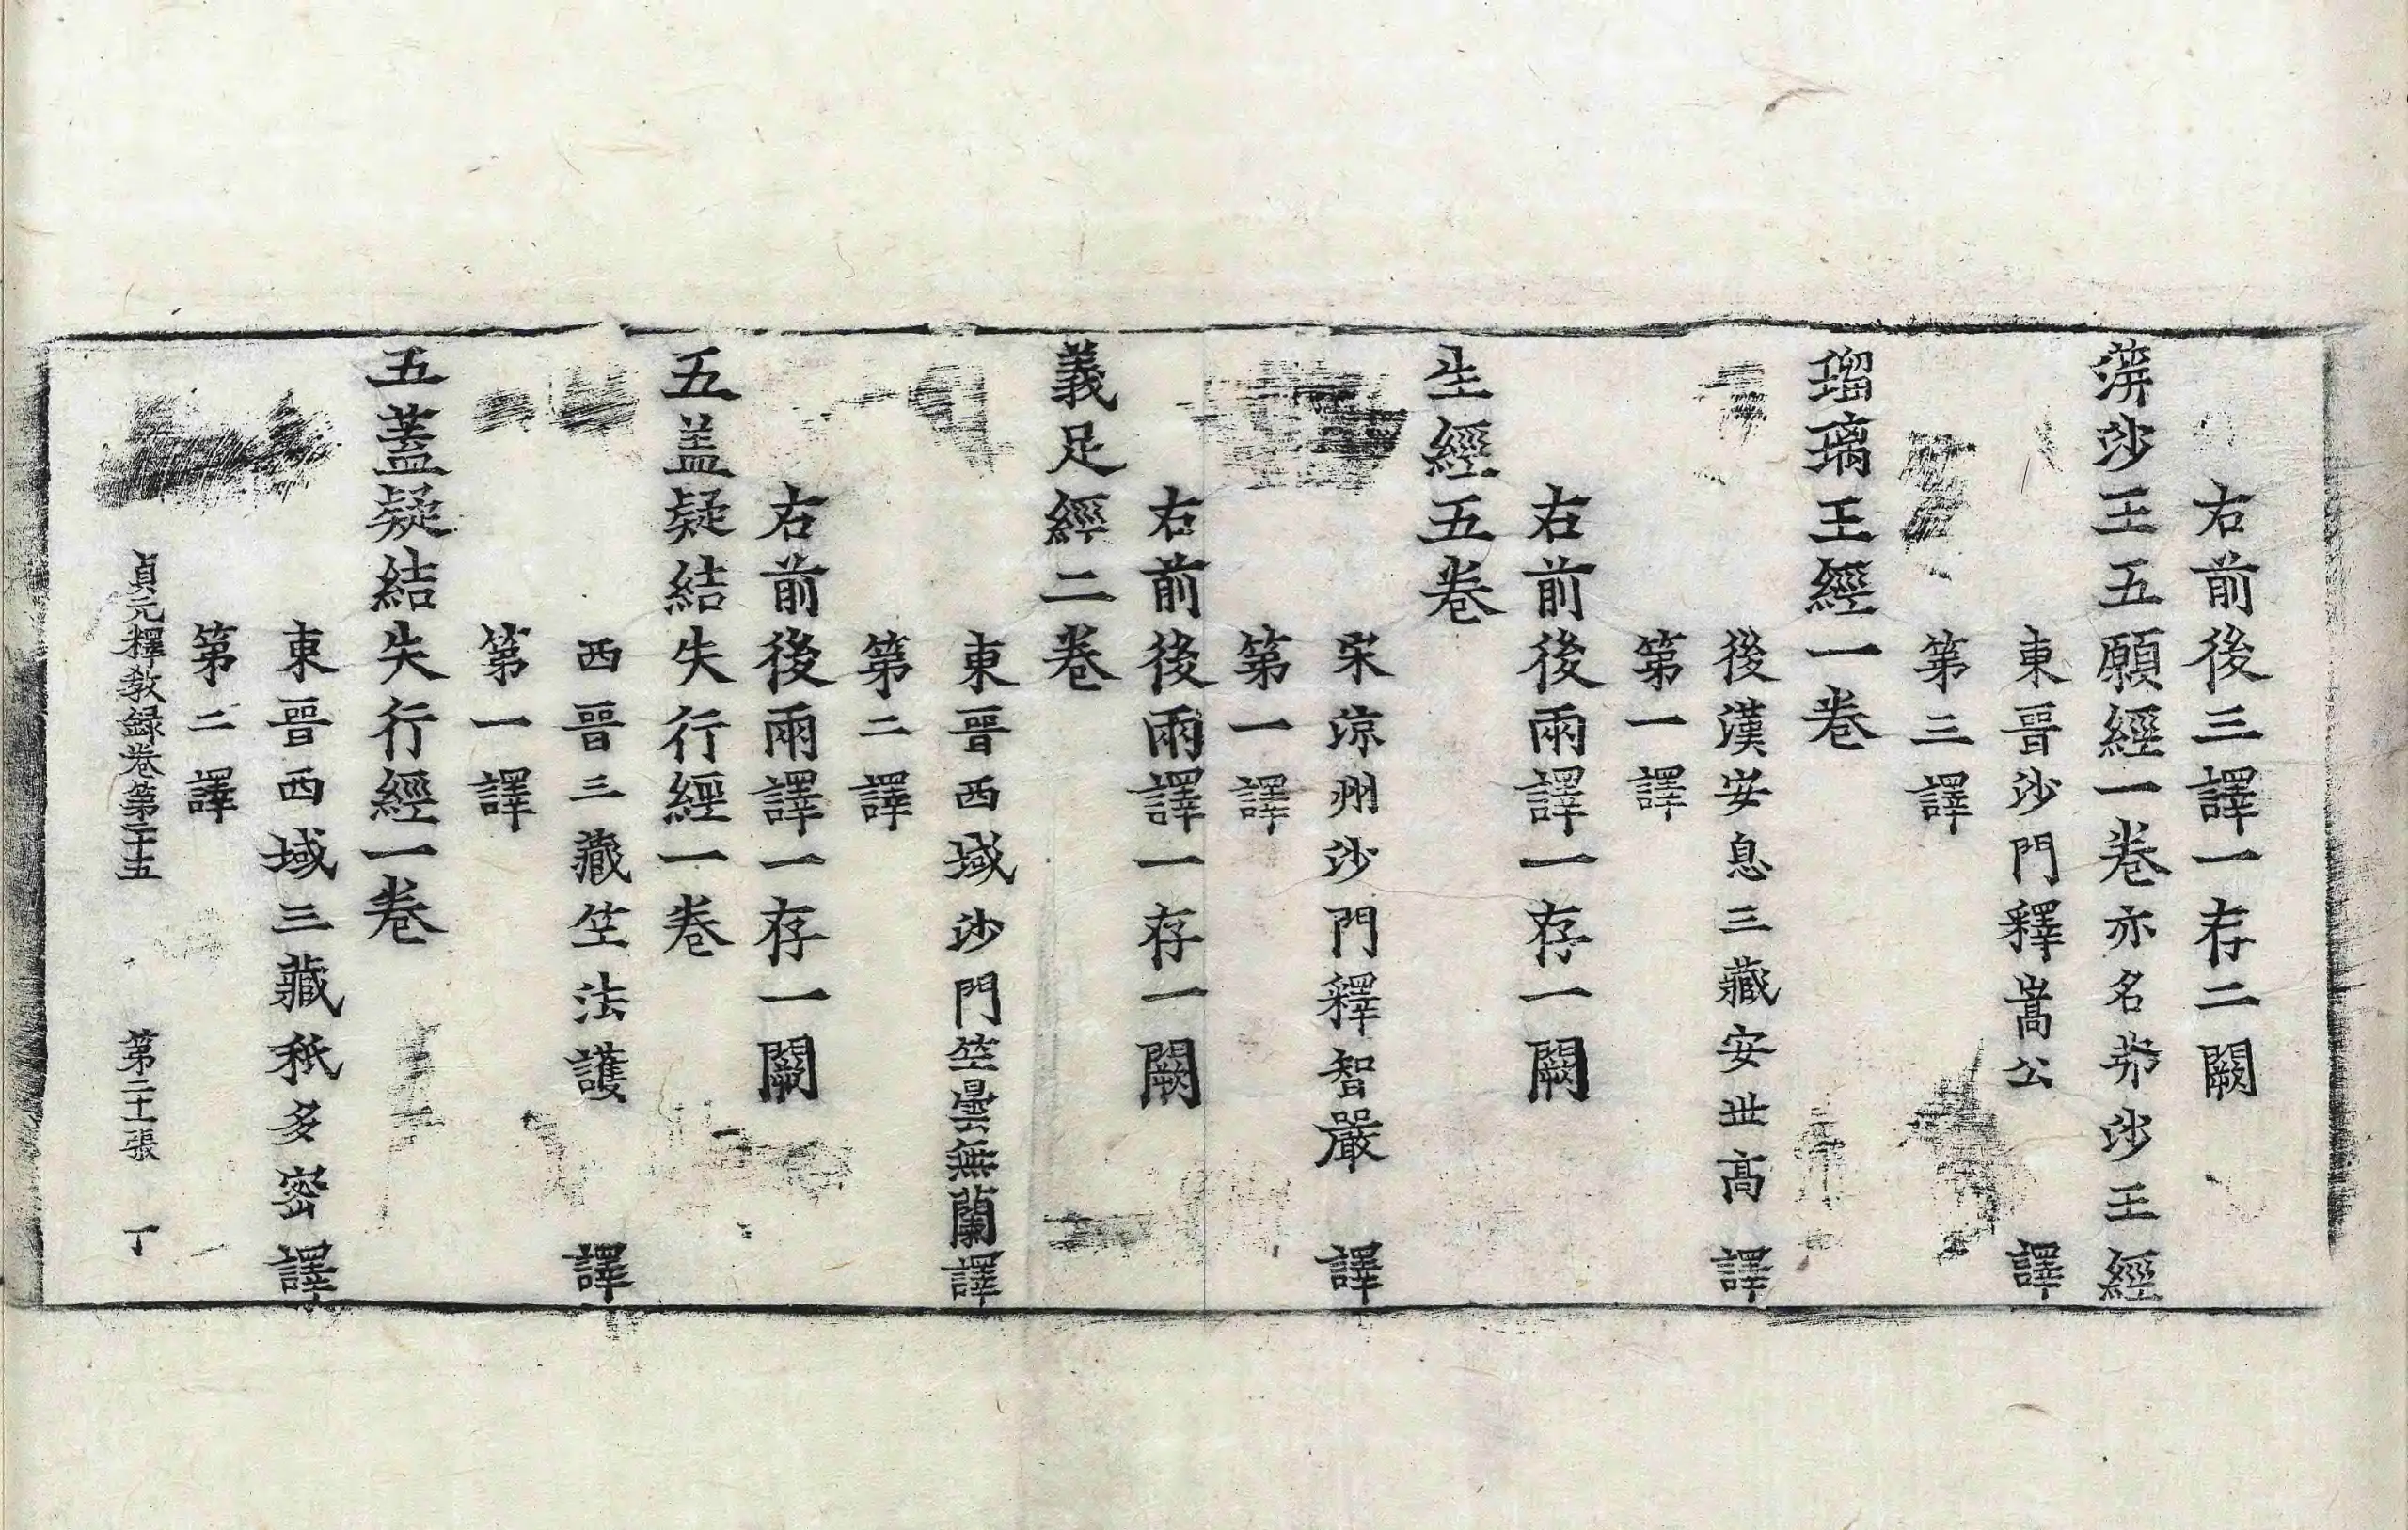 右前後三譯一存二闕
蓱沙王五願經一卷亦名弗沙王經
東晉沙門釋嵩公譯
第三譯
瑠璃王經一卷
後漢安息三藏安世高譯
第一譯
右前後兩譯一存一闕
生經五卷
宋涼州沙門釋智嚴譯
第一譯
右前後兩譯一存一闕
義足經二卷
東晉西域沙門竺曇無蘭譯
第二譯
右前後兩譯一存一闕
五盖疑結失行經一卷
西晉三藏竺法護譯
第一譯
五蓋疑結失行經一卷
東晉西域三藏秖多密譯
第二譯
貞元釋教録卷第二十五 第二十一張 丁